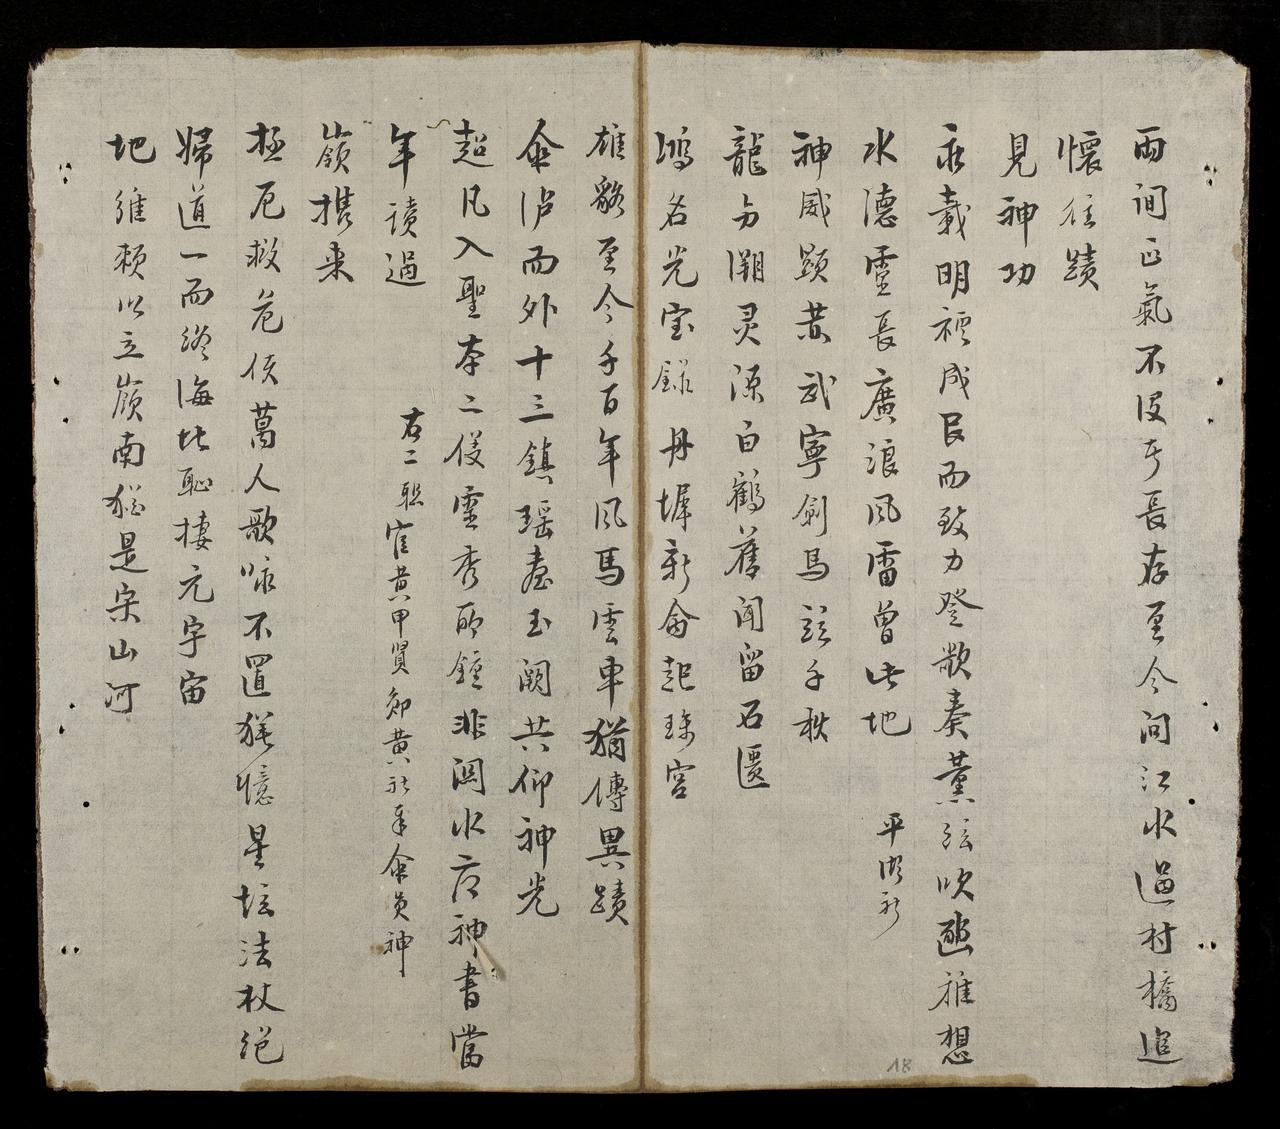 兩间正氣不没于長存至今问江水過村橋追
懷往蹟
見神功
承載明禋成民而致力登歌奏薰弦吹豳雅想
水德靈長廣浪风雷曾此地
平湖
神威顯赫武寧劍馬話千秋
龍分溯灵源白鶴舊闻留石匱
鴻名光宝錄丹墀新侖起珠宮
雄貉至今千百年风馬雲車猶傳異蹟
傘泸而外十三鎮瑶臺玉阙共仰神光
超凡入聖本二侯霊秀所鍾非凋水府神書當
年读過
右二联官黄甲賢
傘負神
嶺携来
拯厄救危侯萬人歌咏不置猶憶星坛法杖绝
婦道一而終海北恥棲元宇宙
地維頼以立嶺南猶是宋山河
18